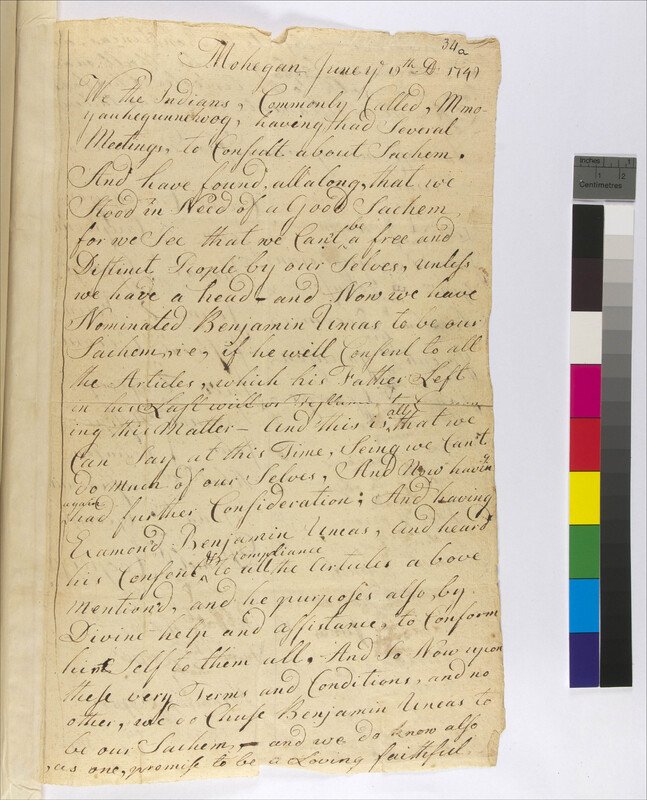 34a
Mohegan June ye 19th D. 1749
We the Indians, Commonly Called, Mmo-
yauhegunnewog, having had Several
Meetings, to Consult about Sachem.
And have found, all along, that we
Stood in Need of a Good Sachem,
for we See that we Can't be a free and
Distinct People by our Selves, unless
we have a head - and Now we have
Nominated Benjamin Uncas to be our
Sachem, ie, if he will Consent to all
the Articles, which his Father Left
in his Last will or
ing this Matter - And this is all that we
Can Say at this Time, Seing we Can't
do much of our Selves, And Now having
again had further Consideration; And having
Examond Benjamin Uncas, and heard
his Consent & compliance to all the Articles above
mentiond, and he purposes also, by
Divine help and assistance, to Conform
him Self to them all. And So Now upon
these very Terms and Conditions, and no
other, we do Chuse Benjamin Uncas to
be our Sachem, - and we do know also
as one, promise to be a Loving faithful
Inches
1
2
Centimetres